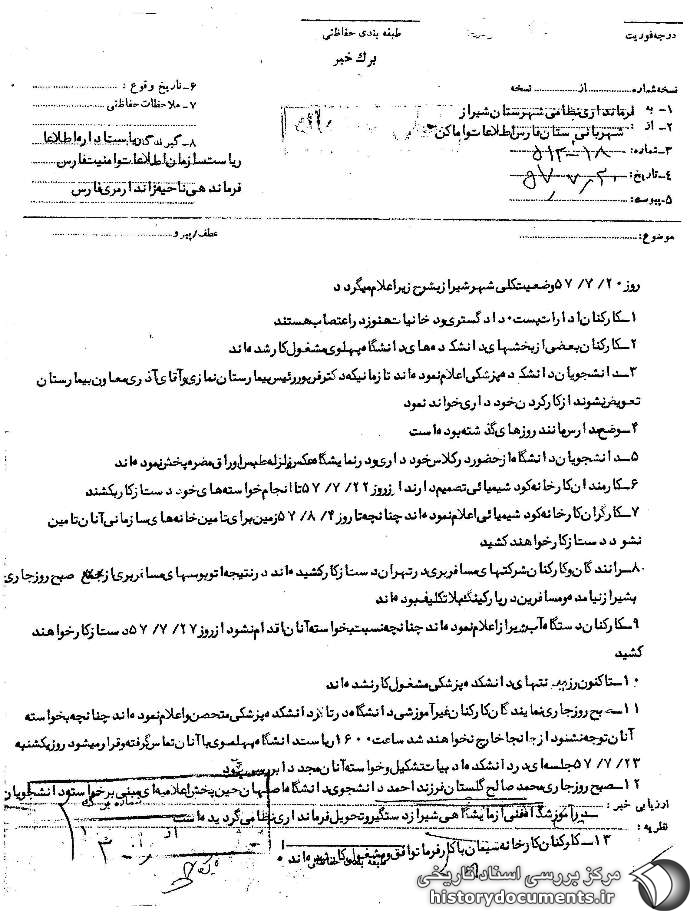 درجه فوریت
طبقه بندی حفاظتی
برگ خبر
نسخه شماره از نسخه
۱ـ به فرمانداری نظامی شهرستان شیراز
۲ـ از : شهربانی استان فارس اطلاعات و اماکن
۳ـ شماره:
۴ـ تاریخ: ۵۷٫۷٫۲۰
۵ـ پیوست:
۶ـ تاریخ وقوع :
۷ـ ملاحظات حفاظتی
۸ـ گیرندگان ریاست اداره اطلاعات
ریاست سازمان اطلاعات و امنیت فارس
فرماندهی ناحیه ژاندارمری فارس
موضوع:
عطف/پیرو
روز ۲۰/ ۷/ ۵۷ وضعیت کلی شهر شیراز بشرح زیر اعلام میگردد
۱ـ کارکنان ادارات پست ۰ دادگستری و دخانیات هنوز در اعتصاب هستند
۲ـ کارکنان بعضی از بخشهای دانشکده های دانشگاه پهلوی مشغول کار شده اند
۳ـ دانشجویان دانشکده پزشکی اعلام نموده اند تا زمانیکه دکتر فرپور رئیس بیمارستان نمازی و آقای آذری معاون بیمارستان
تعویض نشوند از کار کردن خودداری خواهند نمود
۴ـ وضع مدارس مانند روزهای گذشته بوده است
۵ـ دانشجویان دانشگاه از حضور در کلاس خودداری و در نمایشگاه عکس زلزله طبس اوراق مضره پخش نموده اند
۶ـ کارمندان کارخانه کود شیمیائی تصمیم دارند از روز ۲۲/ ۷/ ۵۷ تا انجام خواسته های خود دست از کار بکشند
۷ـ کارگران کارخانه کود شیمیائی اعلام نموده اند چنانچه تا روز ۴/ ۸/ ۵۷ زمین برای تامین خانه های سازمانی آنان تامین
نشود دست از کار خواهند کشید
۸ـ رانندگان و کارکنان شرکتهای مسافربری در تهران دست از کار کشیده اند در نتیجه اتوبوسهای مسافربری از صبح روز جاری
بشیراز نیامده و مسافرین در پارکینگ بلاتکلیف بوده اند
۹ـ کارکنان دستگاه آب شیراز اعلام نموده اند چنانچه نسبت بخواسته آنان اقدام نشود از روز ۲۷/ ۷/ ۵۷ دست از کار خواهند
کشید
۱۰ـ تاکنون رزیدنتهای دانشکده پزشکی مشغول کار نشده اند
۱۱ـ صبح روز جاری نمایندگان کارکنان غیر آموزشی دانشگاه در تالار دانشکده پزشکی متحصن و اعلام نموده اند چنانچه بخواسته
آنان توجه نشود از آنجا خارج نخواهند شد ساعت ۱۶۰۰ ریاست دانشگاه پهلوی با آنان تماس گرفته و قرار میشود روز یکشنبه
۲۳/ ۷/ ۵۷ جلسه ای در دانشکده ادبیات تشکیل و خواسته آنان مجددا بررسی شود
۱۲ـ صبح روز جاری محمد صالح گلستان فرزند احمد دانشجوی دانشگاه اصفهان حین پخش اعلامیه ای مبنی بر خواست دانشجویان
ارزیابی خبر :
در آموزشگاه فنی آزمایشگاهی شیراز دستگیر و تحویل فرمانداری نظامی گردیده است
نظریه :
۱۳ـ کارکنان کارخانه سیمان با کارفرما توافق و مشغول کار شده اند
طبقه بندی حفاظتی
شماره برگ
از
مرکز بررسی اسناد تاریخی
historydocuments.ir